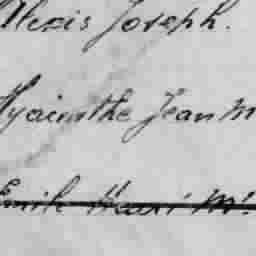 Alexis Joseph.
Hyacinthe Jean M
Emile Henri M.